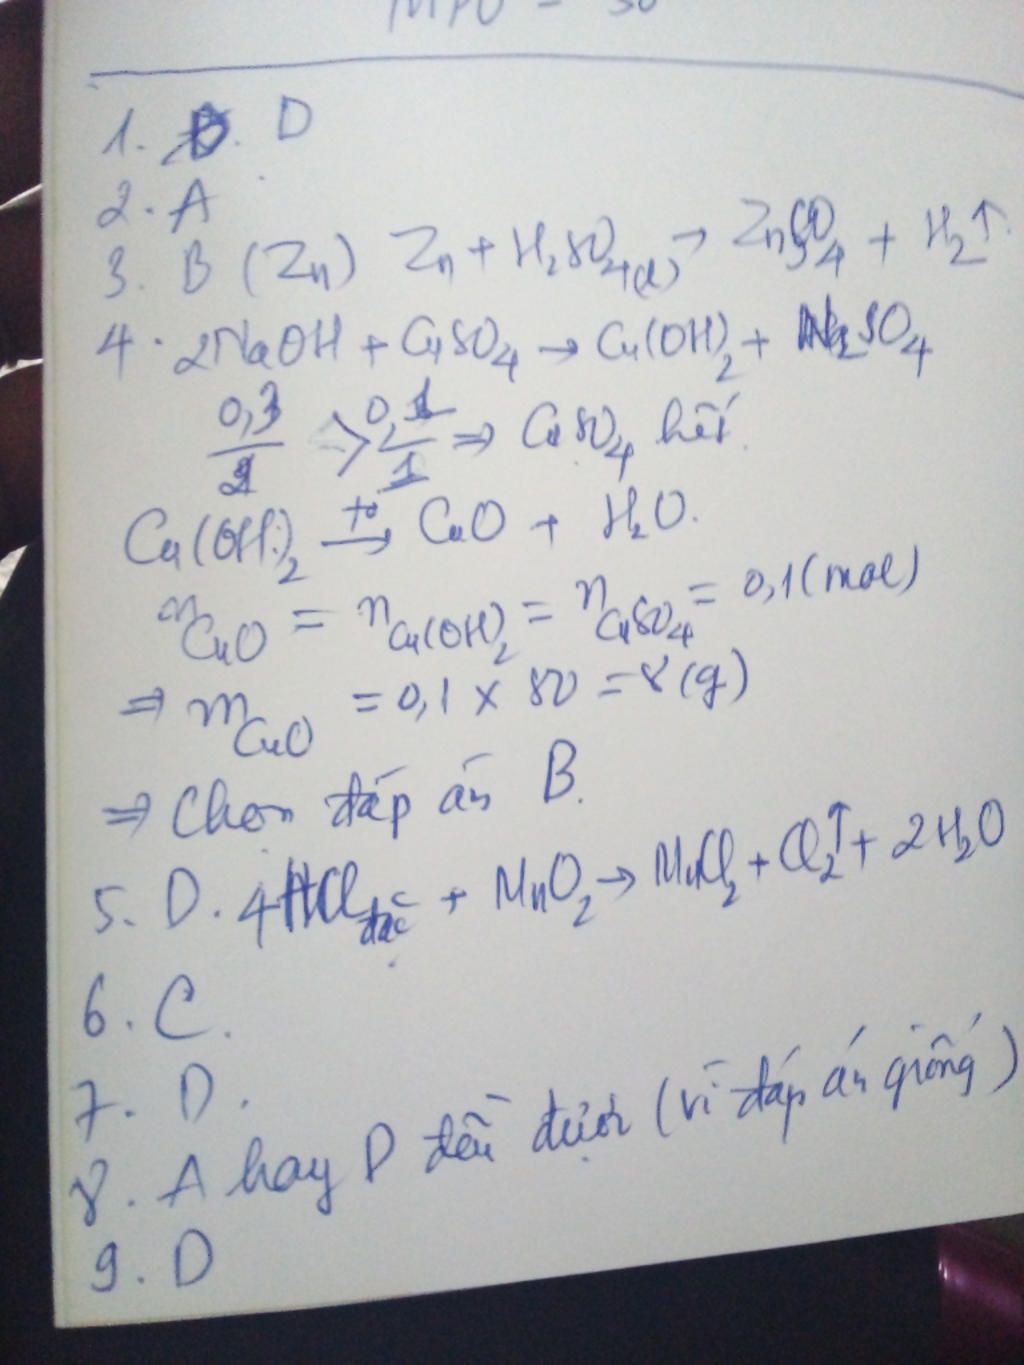 1. D
2. A
3. B (Zn) Zn + H₂SO₄(l) → ZnSO₄ + H₂↑
4. 2NaOH + CuSO₄ → Cu(OH)₂ + Na₂SO₄
0,3/2 > 0,1/1 ⇒ CuSO₄ hết
Cu(OH)₂ t°→ CuO + H₂O.
nCuO = nCu(OH)₂ = nCuSO₄ = 0,1 (mol)
⇒ mCuO = 0,1 × 80 = 8 (g)
⇒ Chọn đáp án B.
5. D. 4HClđặc + MnO₂ → MnCl₂ + Cl₂↑ + 2H₂O
6. C.
7. D.
8. A hay D đều được (vì đáp án giống)
9. D